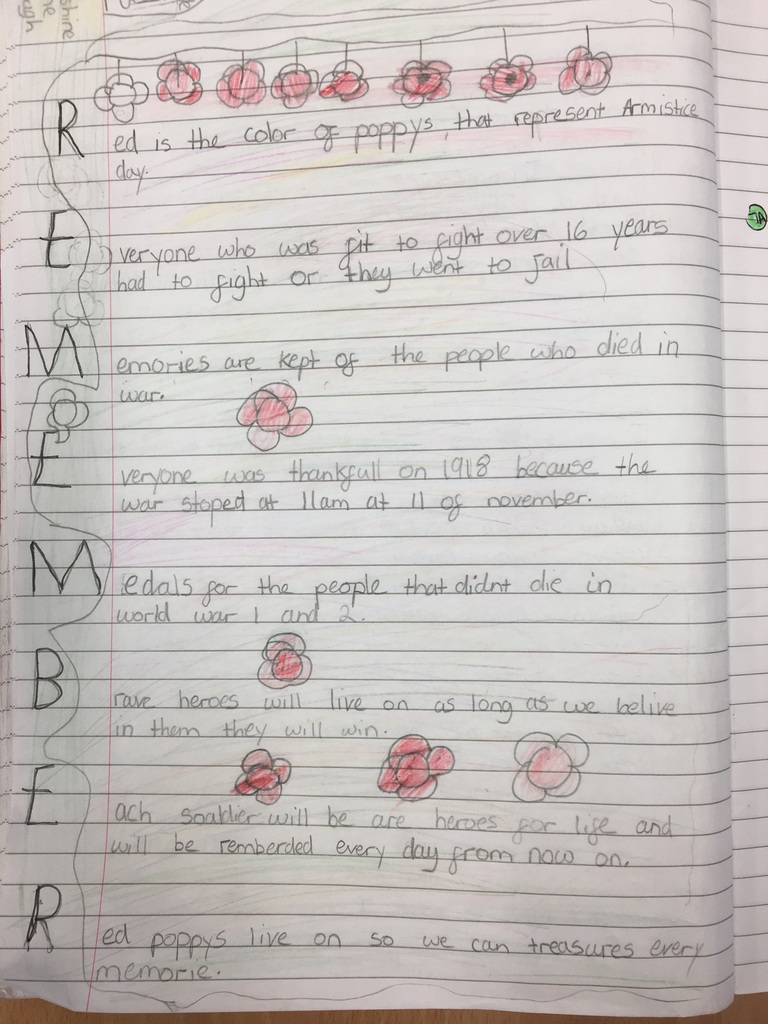 shine
ne
ugh
Red is the color of poppys, that represent Armistice
day.
Everyone who was fit to fight over 16 years
had to fight or they went to jail
Memories are kept of the people who died in
war.
Everyone was thankfull on 1918 because the
war stoped at 11am at 11 of november.
Medals for the people that didnt die in
world war 1 and 2.
Brave heroes will live on as long as we belive
in them they will win.
Each soaldier will be are heroes for life and
will be remberded every day from now on.
Red poppys live on so we can treasures every
memorie.